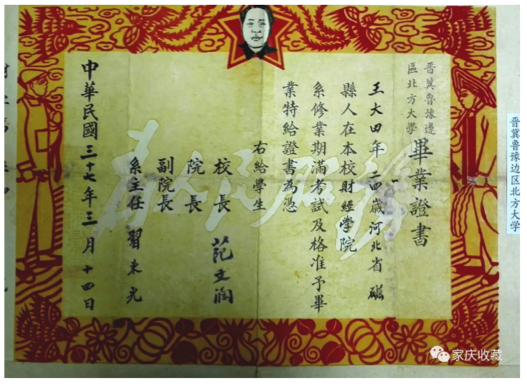 晉冀魯豫邊
區北方大學
畢業證書
王大四年二四歲河北省磁
縣人在本校財經學院
系修業期滿考試及格准予畢
業特給證書為憑
右給學生
校長 范文瀾
院長
副院長
系主任 習東光
中華民國三十七年三月十四日
為人民服務
晋冀鲁豫边区北方大学
家庆收藏